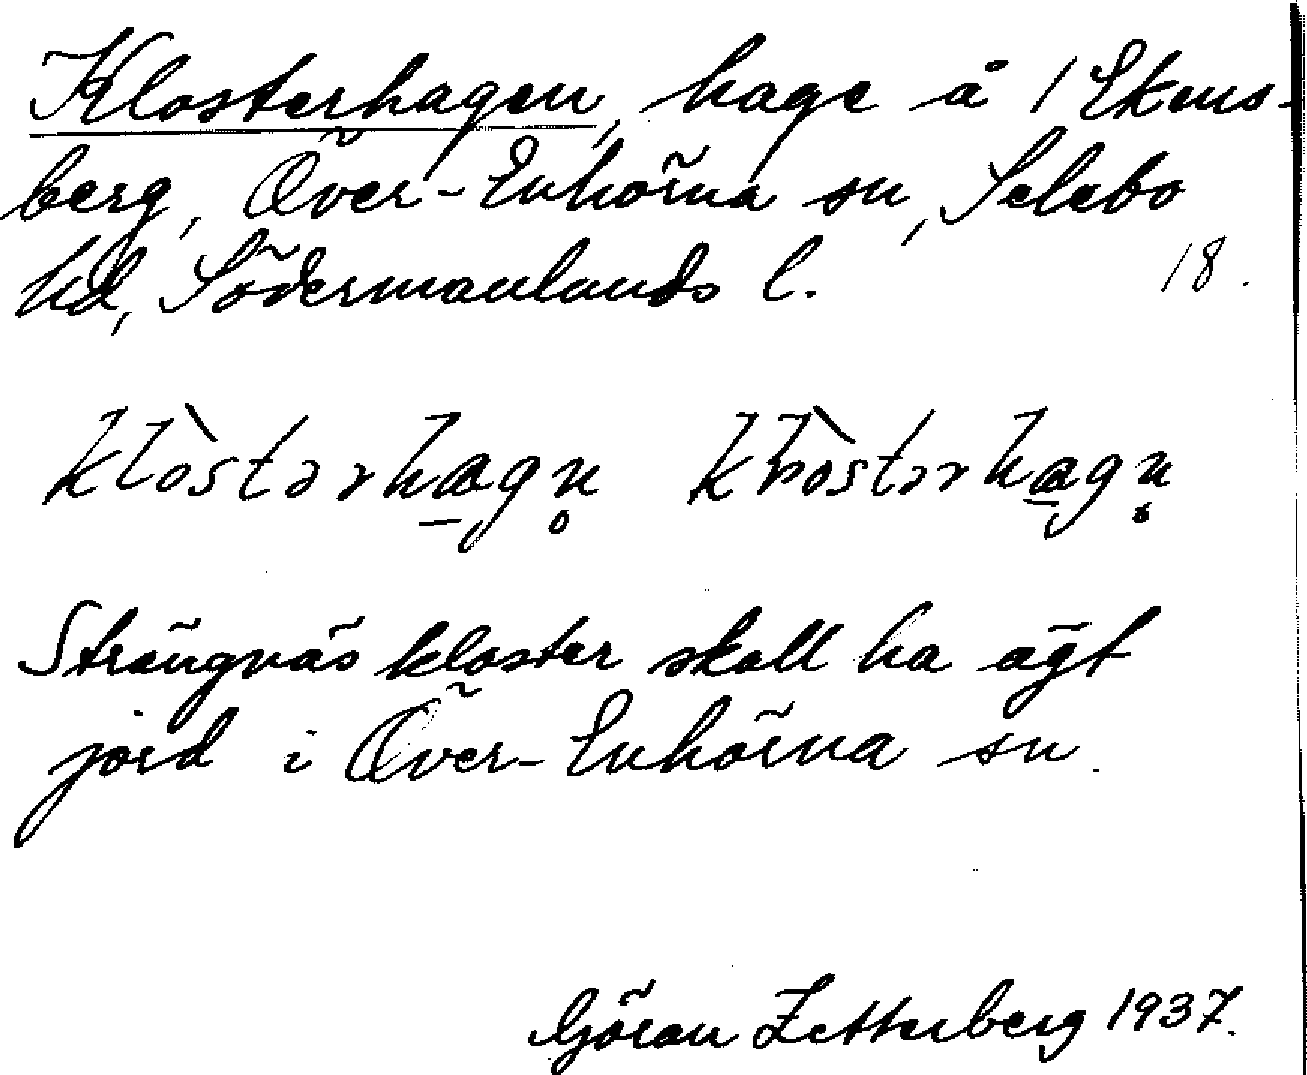 Klosterhagen, hage å 1 Ekens-
berg, Över-Enhörna sn, Selebo
hd, Södermanlands l. 18.
klòstərhagn̥
Strängnäs kloster skall ha ägt
jord i Över-Enhörna sn.
Göran Zetterberg 1937.